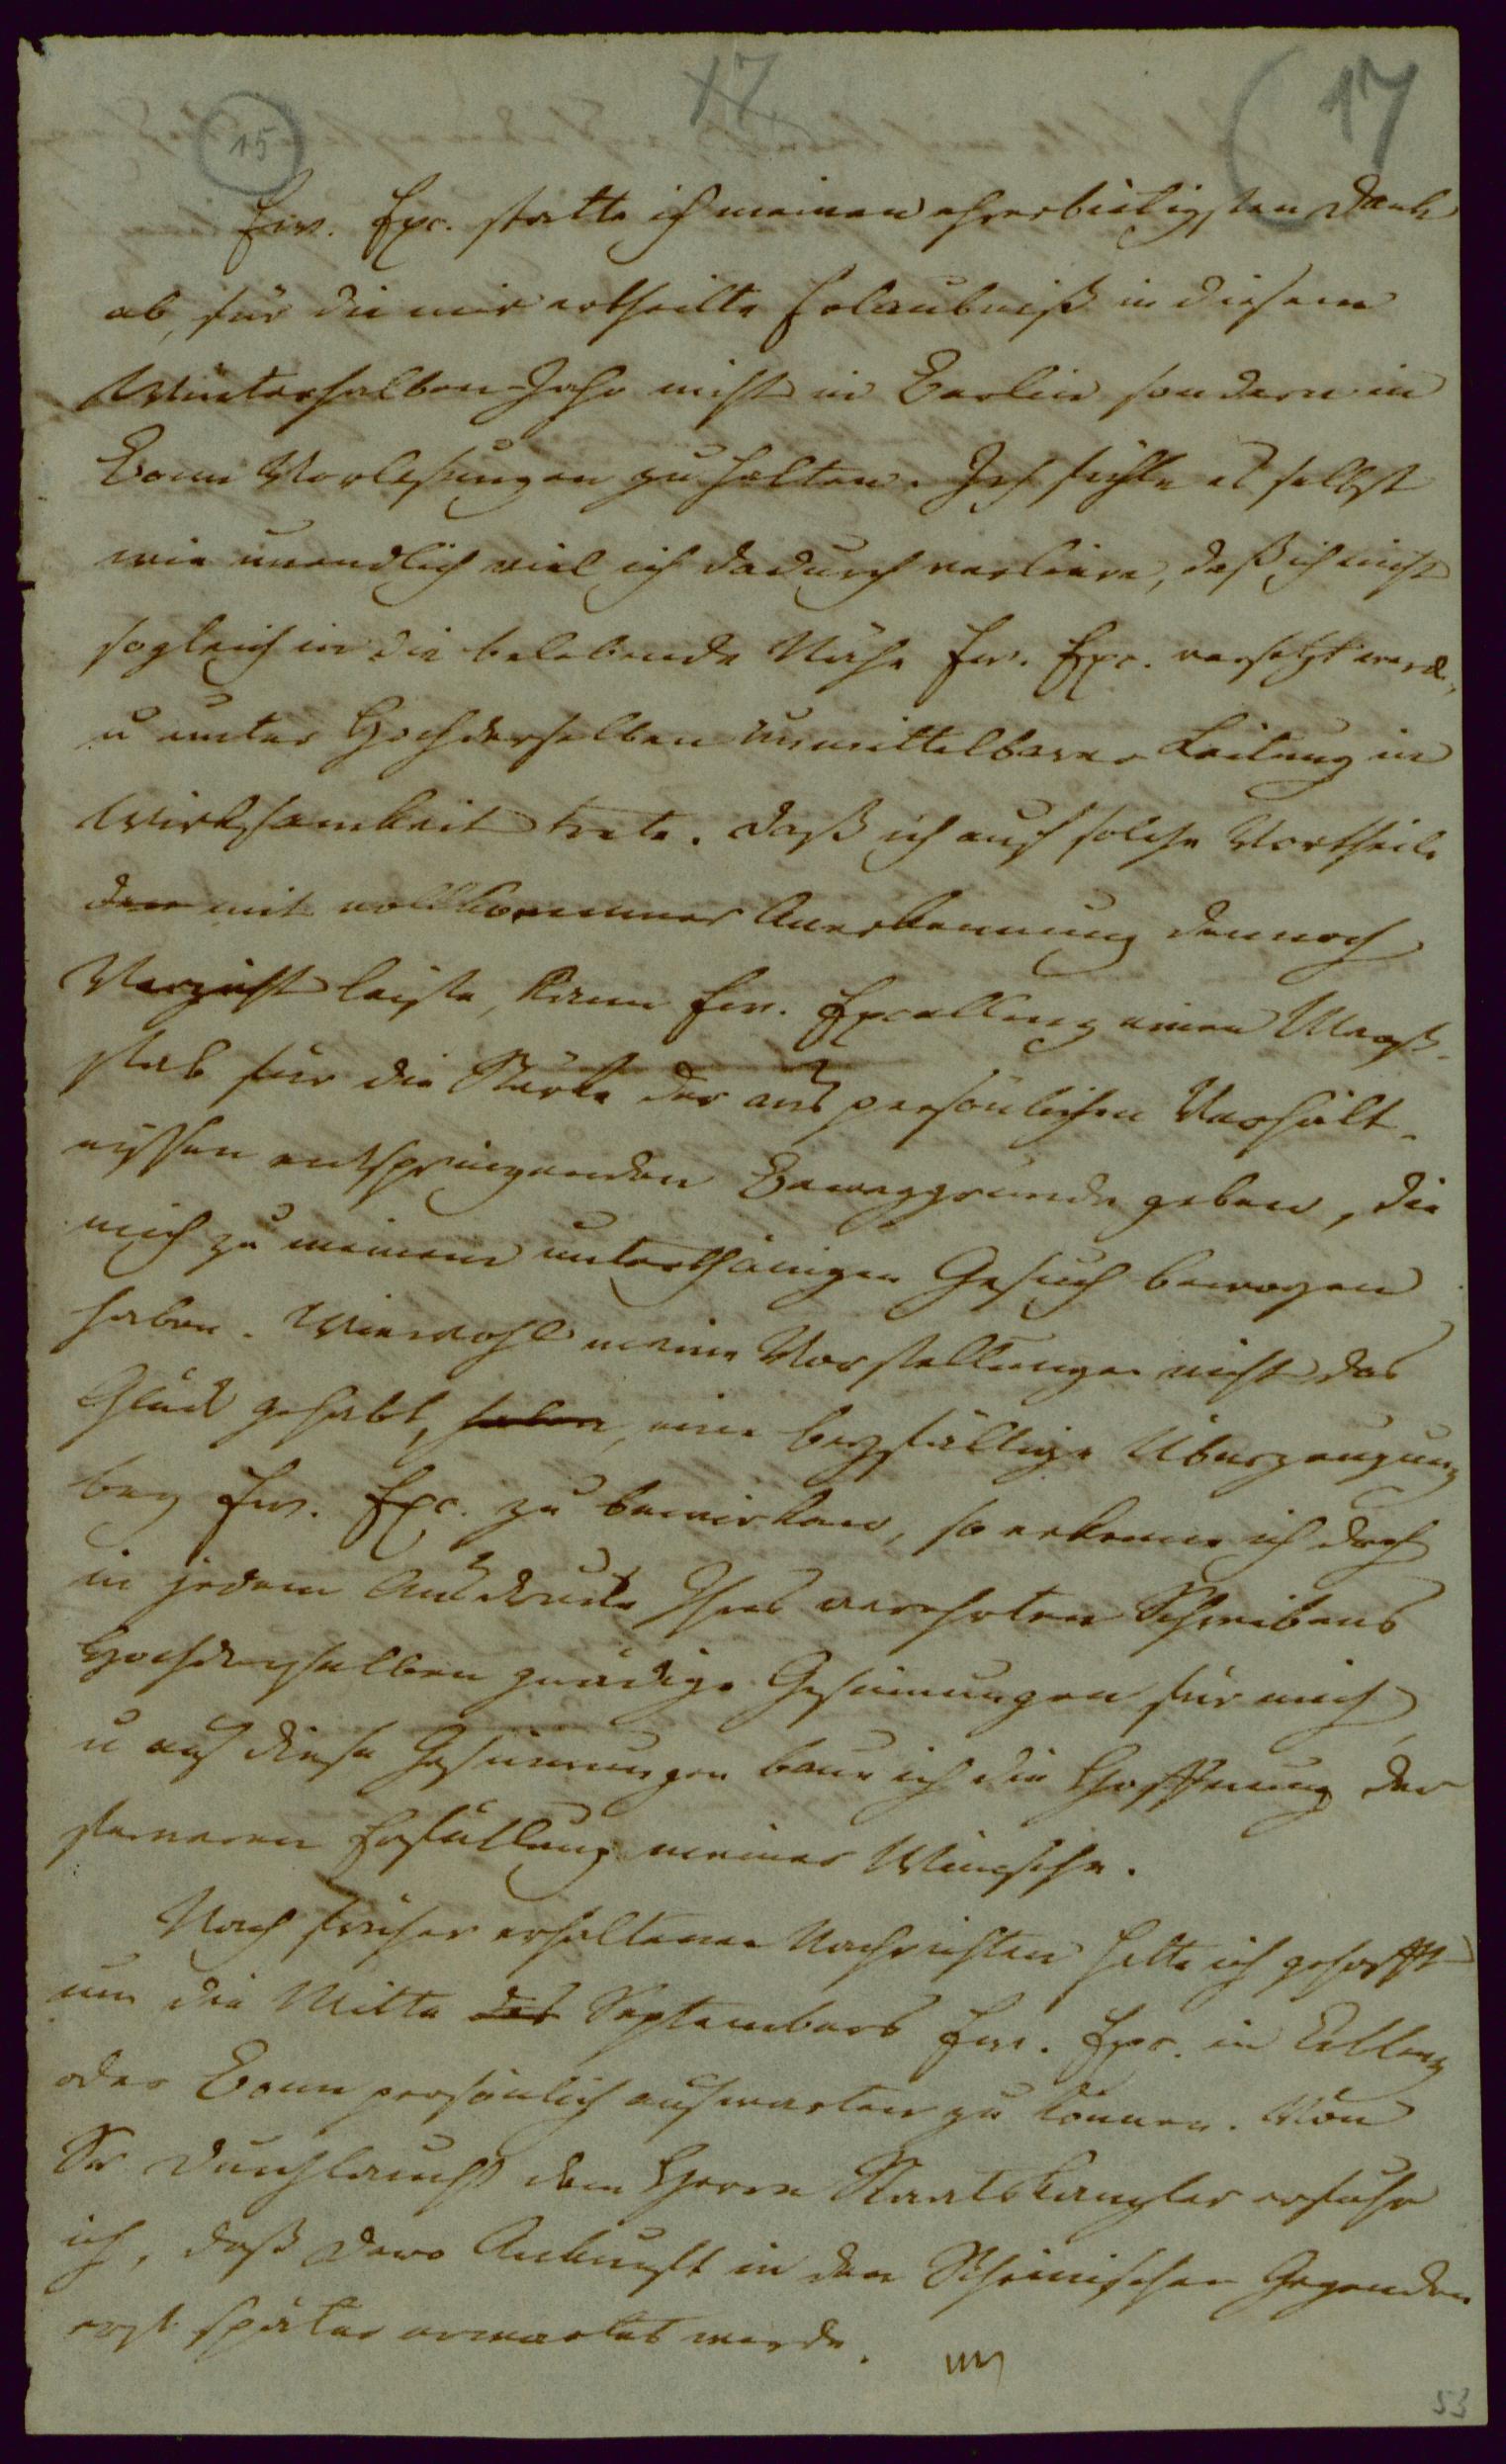 17
17
15
Ew. Exc. statte ich meinen ehrerbietigsten Dank
ab, für die mir ertheilte Erlaubniß in diesem
Winterhalben-Jahr nicht in Berlin sondern in
Bonn Vorlesungen zu halten. Ich fühle es selbst
wie unendlich viel ich dadurch verliere, daß ich nicht
sogleich in die belebende Nähe Ew. Exc. versetzt werde,
u unter Hochderselben unmittelbarer Leitung in
Wirksamkeit trete. Daß ich auf solche Vortheile
den mit vollkommner Anerkennung dennoch
Verzicht leiste, kann Ew. Excellenz einen Maaß-
stab für die Stärke der aus persönlichen Verhält-
nissen entspringenden Beweggründe geben, die
mich zu meinem unterthänigen Gesuch bewogen
haben. Wiewohl meine Vorstellungen nicht das
Glück gehabt, haben, eine beyfällige Überzeugung
bey Ew. Exc. zu bewirken, so erkenne ich doch
in jedem Ausdrucke Ihres verehrten Schreibens
Hochderselben gnädige Gesinnungen für mich,
u auf diese Gesinnungen baue ich die Hoffnung der
ferneren Erfüllung meiner Wünsche.
Nach früher erhaltenen Nachrichten hatte ich gehofft
um die Mitte des Septembers Ew. Exc. in Coblenz
oder Bonn persönlich aufwarten zu können. Von
Sr Durchlaucht dem Herrn Staatskanzler erfuhr
ich, daß Dero Ankunft in den Rheinischen Gegenden
erst später erwartet werde.
53